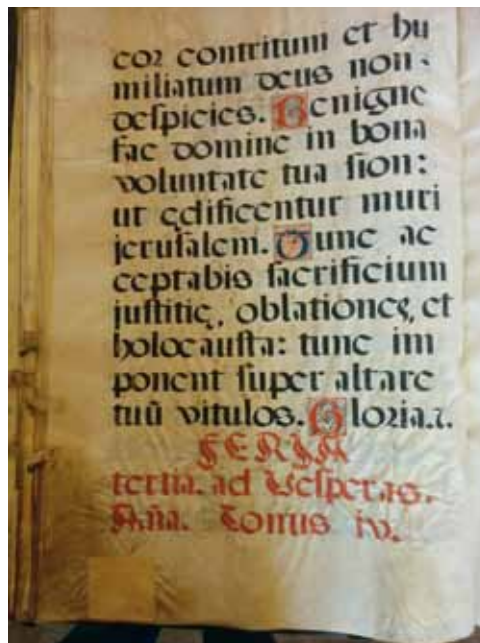 coꝛ contritum et hu
miliatum deus non
deſpicies. Benigne
fac domine in bona
voluntate tua ſion:
ut ędificentur muri
jeruſalem. Tunc ac
ceptabis ſacrificium
juſtitię, oblationes, et
holocauſta: tunc im
ponent ſuper altare
tuū vitulos. Gloꝛia.ꝛ.
FERIA
tertia. ad Veſperas.
Aña. Tonus iv.